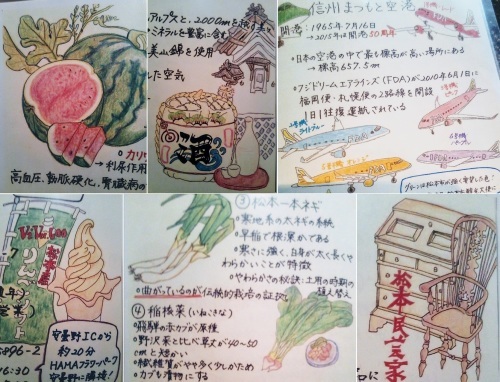 カリウ
→利尿作用
高血圧、動脈硬化、腎臓病の
アルプスと、2,000mを越す美
ミネラルを豊富に含む
美山錦を使用
した空気
信州まつもと空港
開港：1965年7月16日
→2015年は開港50周年
・日本の空港の中で最も標高が高い場所にある
→標高657.5m
・フジドリームエアラインズ(FDA)が2010年6月1日に
福岡便・札幌便の2路線を開設
1日1往復運航されている
ViVi.Goo
松本産
りんご
営業)
5896-2
安曇野ICから
約20分
HAMAフラワーパーク
安曇野に隣接！
③松本一本ネギ
・寒地系の太ネギの系統
・早稲で根深かである
・寒さに強く、白身が太く長くや
わらかいことが特徴
・やわらかさの秘訣：土用の時期の
植え替え
・曲がっているのが伝統的栽培の証拠
④稲核菜(いねこきな)
・飛騨の赤カブが原種
・野沢菜と比べ草丈が40～50
cmと短かい
・繊維質がやや多く少しかため
・カブも漬物にする
松本民芸家具